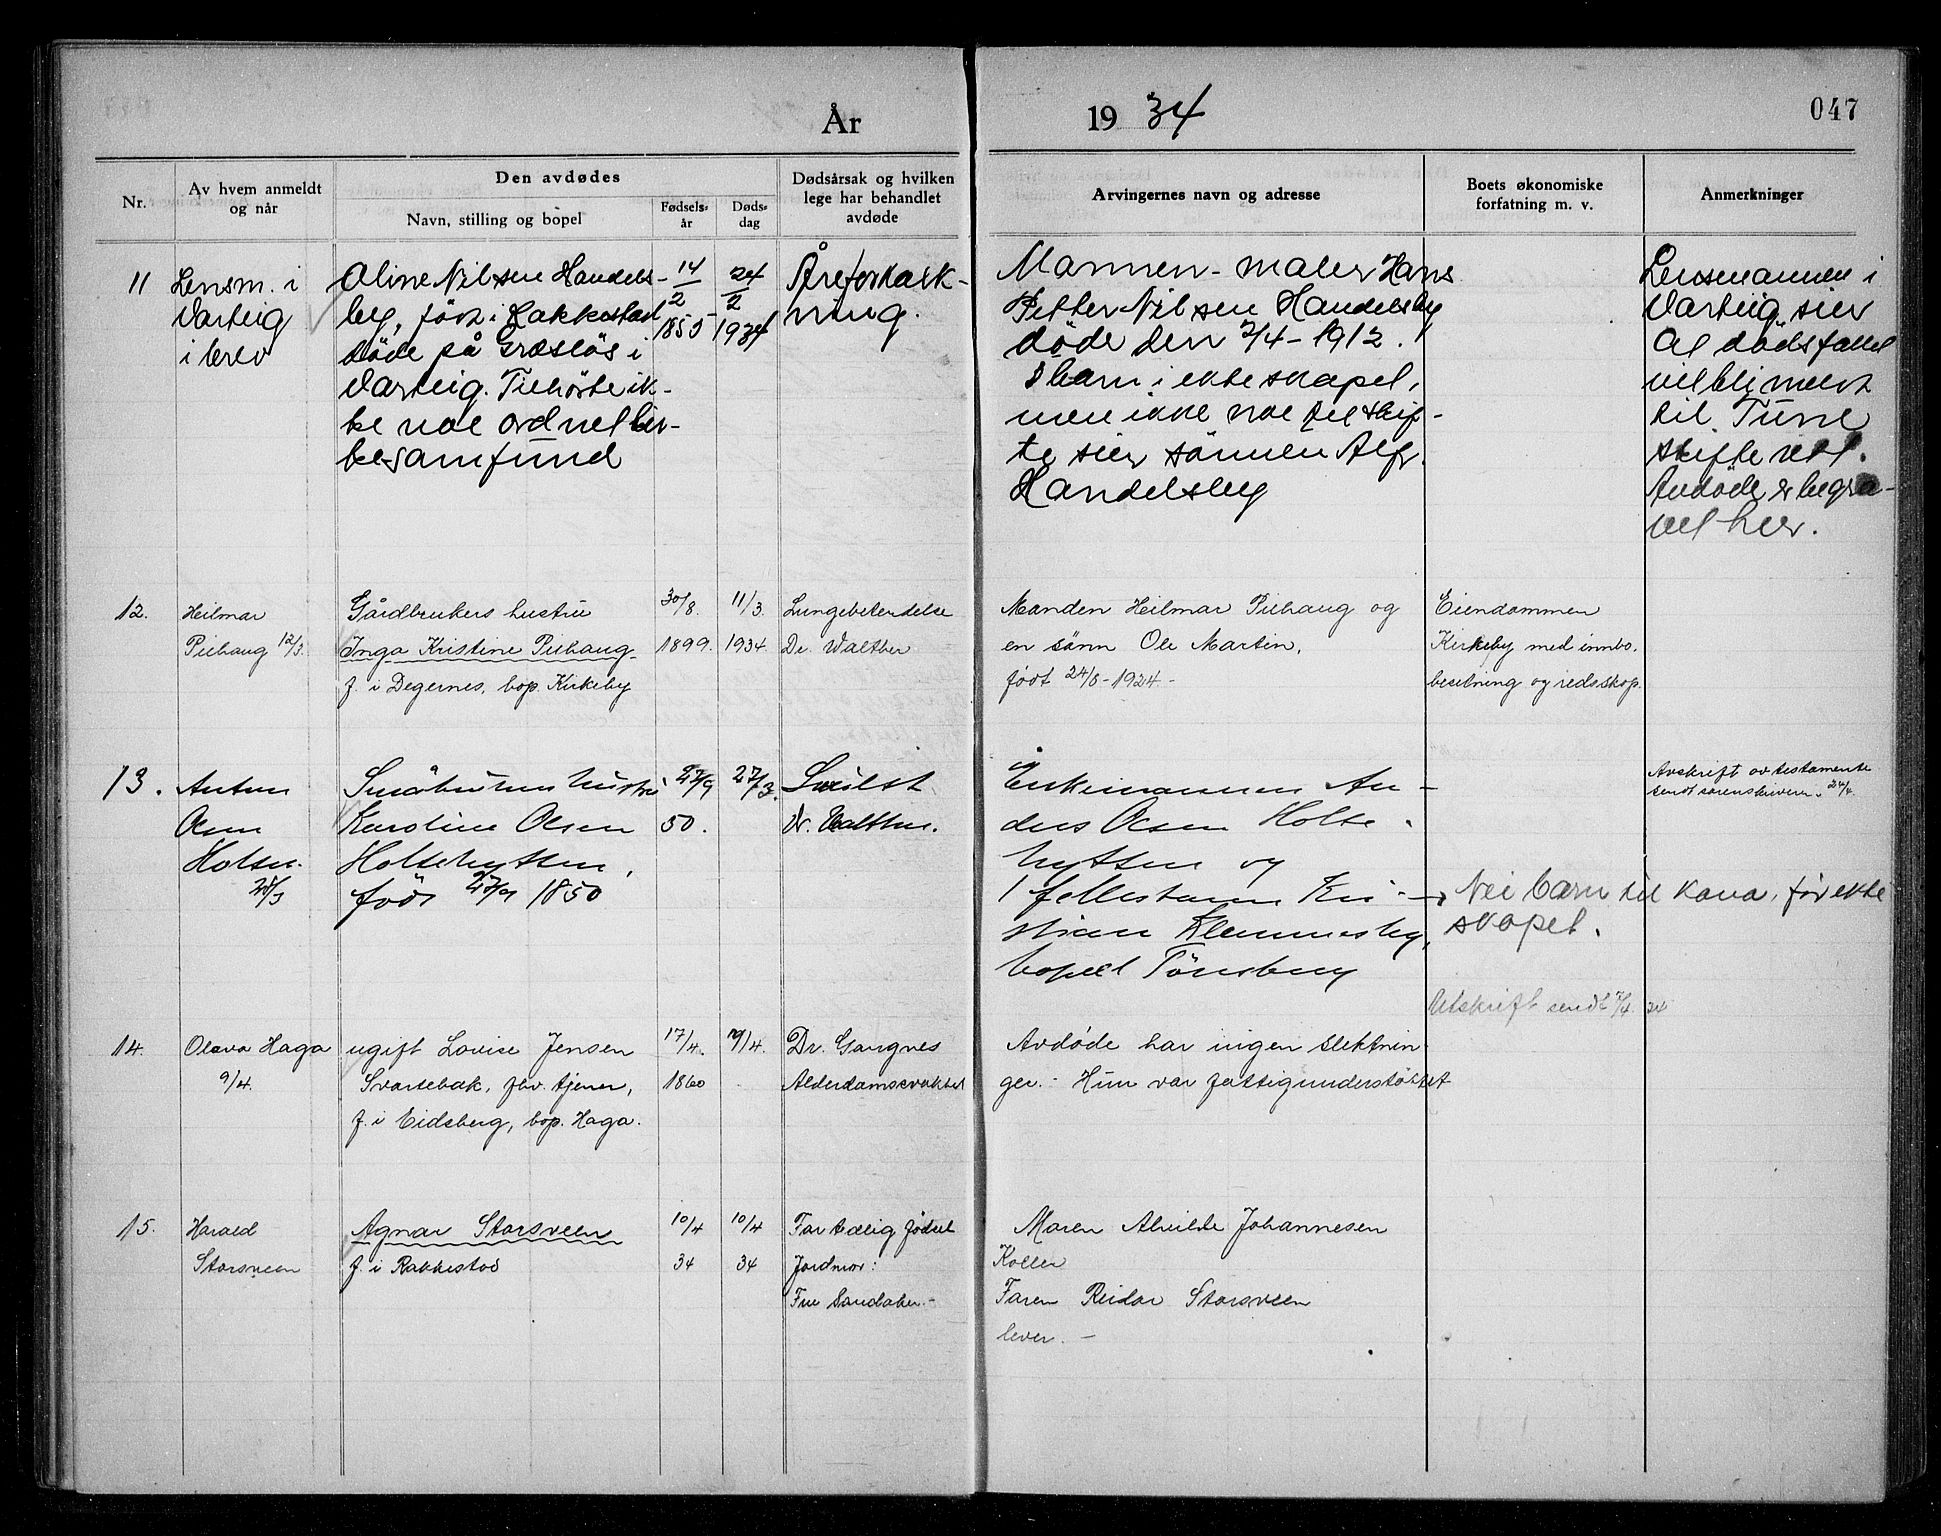 År 1934
047
Nr.
Av hvem anmeldt
og når
Den avdødes
Navn, stilling og bopel
Fødsels-
år
Døds-
dag
Dødsårsak og hvilken
lege har behandlet
avdøde
Arvingernes navn og adresse
Boets økonomiske
forfatning m. v.
Anmerkninger
11
Lensm. i
Varteig
i brev
Oline Nilsen Handels-
by, født i Rakkestad
døde på Græsløs i
Varteig. Tilhørte ik-
ke noe ordnet kir-
kesamfund
14
2
1855
24
2
1934
Åreforkalk-
ning.
Mannen - maler Hans
Petter Nilsen Handelsby
døde den 2/4 - 1912.
barn i ekteskapet,
men ikke noe til skif-
te sier sønnen Alfr.
Handelsby
Lensmannen i
Varteig sier
at dødsfallet
vil bli meldt
til Tune
skifterett.
Avdøde er begra-
vet her.
12.
Heilmar
Piehaug 12/3.
Gårdbrukers hustru
Inga Kristine Piehaug
f. i Degernes, bop. Kirkeby
30/8.
1899.
11/3.
1934.
Lungebetendelse
Dr. Walther
Manden Heilmar Piehaug og
en sønn Ole Martin,
født 24/8 - 1924 -
Eiendommen
Kirkeby med innbo,
besetning og redskap.
13.
Anton
Olsen
Holter
Småbrukers hustru
Karoline Olsen
Holtehytten,
født 27/9 1850
27/9
50.
27/3.
Dr. Walther.
Enkemannen An-
ders Olsen Holte-
hytten og
1 fellesbarn Kri-
stian Klemmesby,
bopæl Tønsberg
Nei barn til kona, før ekte
skapet.
Avskrift av testamente
sendt sorenskriveren 24/4.
Utskrift sendt 7/4. 34
14.
Olava Haga
9/4.
ugift Lovise Jensen
Svartebæk, fhv. tjener,
f. i Eidsberg, bop. Haga.
17/4.
1860
9/4.
Dr. Gangnes
Alderdomssvakhet
Avdøde har ingen slektnin-
ger. - Hun var fattigunderstøttet
15.
Harald
Storsveen
Agnar Storsveen
f. i Rakkestad
10/4
34
10/4
34
For tidlig fødsel
Jordmor:
Fru Sandaker. -
Maren Alvilde Johannesen
Koller
Faren Reidar Storsveen
lever. -